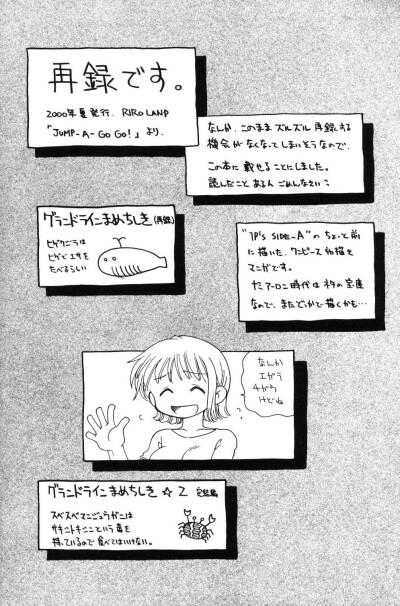 再録です。
2000年夏発行. RIRO LAND
「JUMP-A-GO GO!」より.
なんか. このまま ズルズル 再録する
機会が なくなって しまいそうなので.
この本に 載せることに しました。
読んだこと ある人 ごめんなさい。
グランドラインまめちしき(再録)
ヒゲクジラは
ヒゲで エサを
たべるらしい
"1P's SIDE-A" の ちょっと前
に 描いた. ワンピース 初描き
マンガです。
ナミ アーロン時代は ネタの宝庫
なので. また どっかで 描くかも…
なんか
エガラ
ちがう
けどね
グランドラインまめちしき ☆ 2 完結編
スベスベマンジュウガニは
サキシトキシンという 毒を
持っているので 食べてはいけない。